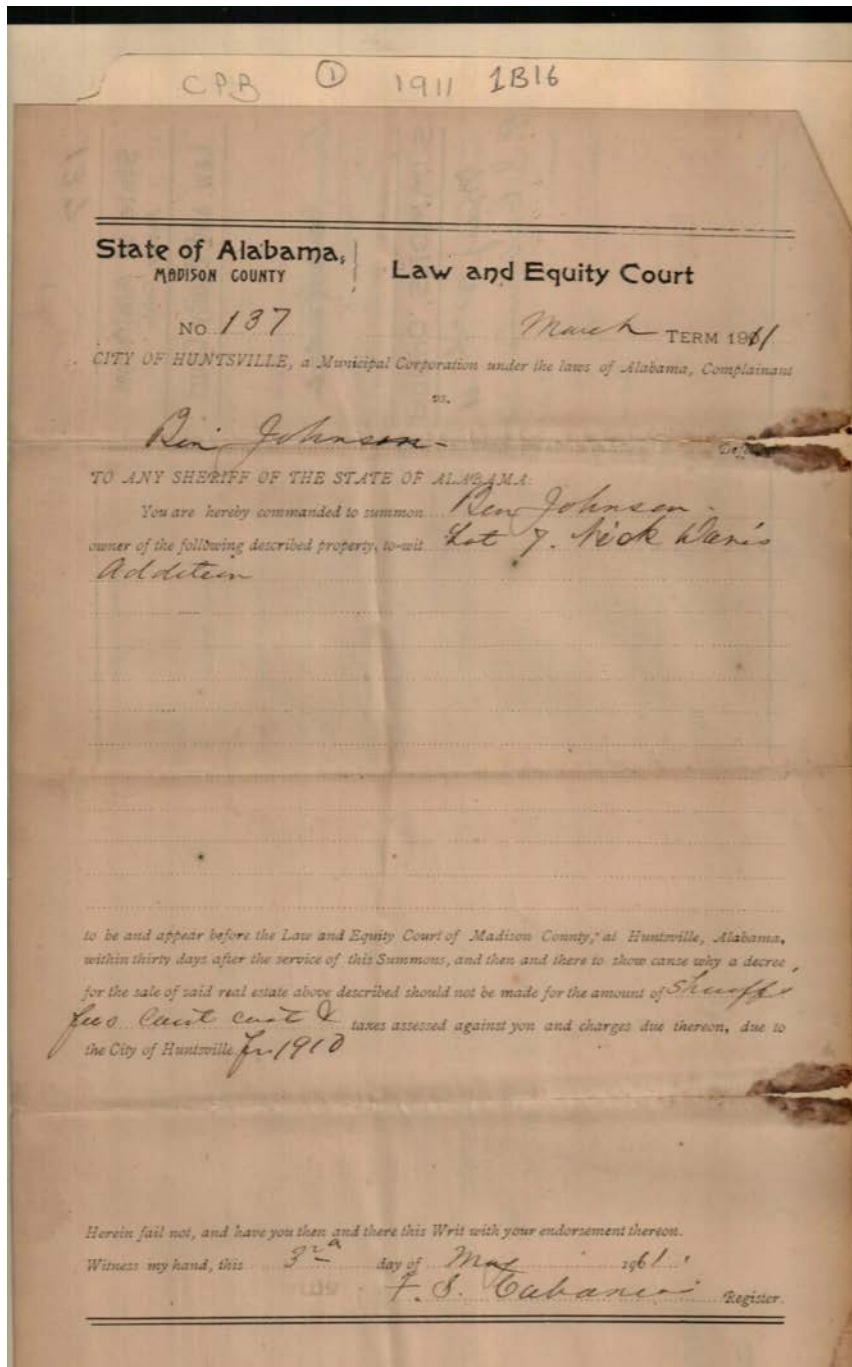 CPB ① 1911 1B16
State of Alabama, Law and Equity Court
MADISON COUNTY
No. 137 March TERM 1911
CITY OF HUNTSVILLE, a Municipal Corporation under the laws of Alabama, Complainant
vs.
Ben Johnson
TO ANY SHERIFF OF THE STATE OF ALABAMA:
You are hereby commanded to summon Ben Johnson
owner of the following described property, to-wit Lot 7. Nick Davis
Addition
to be and appear before the Law and Equity Court of Madison County, at Huntsville, Alabama,
within thirty days after the service of this Summons, and then and there to show cause why a decree
for the sale of said real estate above described should not be made for the amount of Sheriff's
fees Court cost & taxes assessed against you and charges due thereon, due to
the City of Huntsville for 1910
Herein fail not, and have you then and there this Writ with your endorsement thereon.
Witness my hand, this 3rd day of May 1911.
F. S. Cabaniss Register.